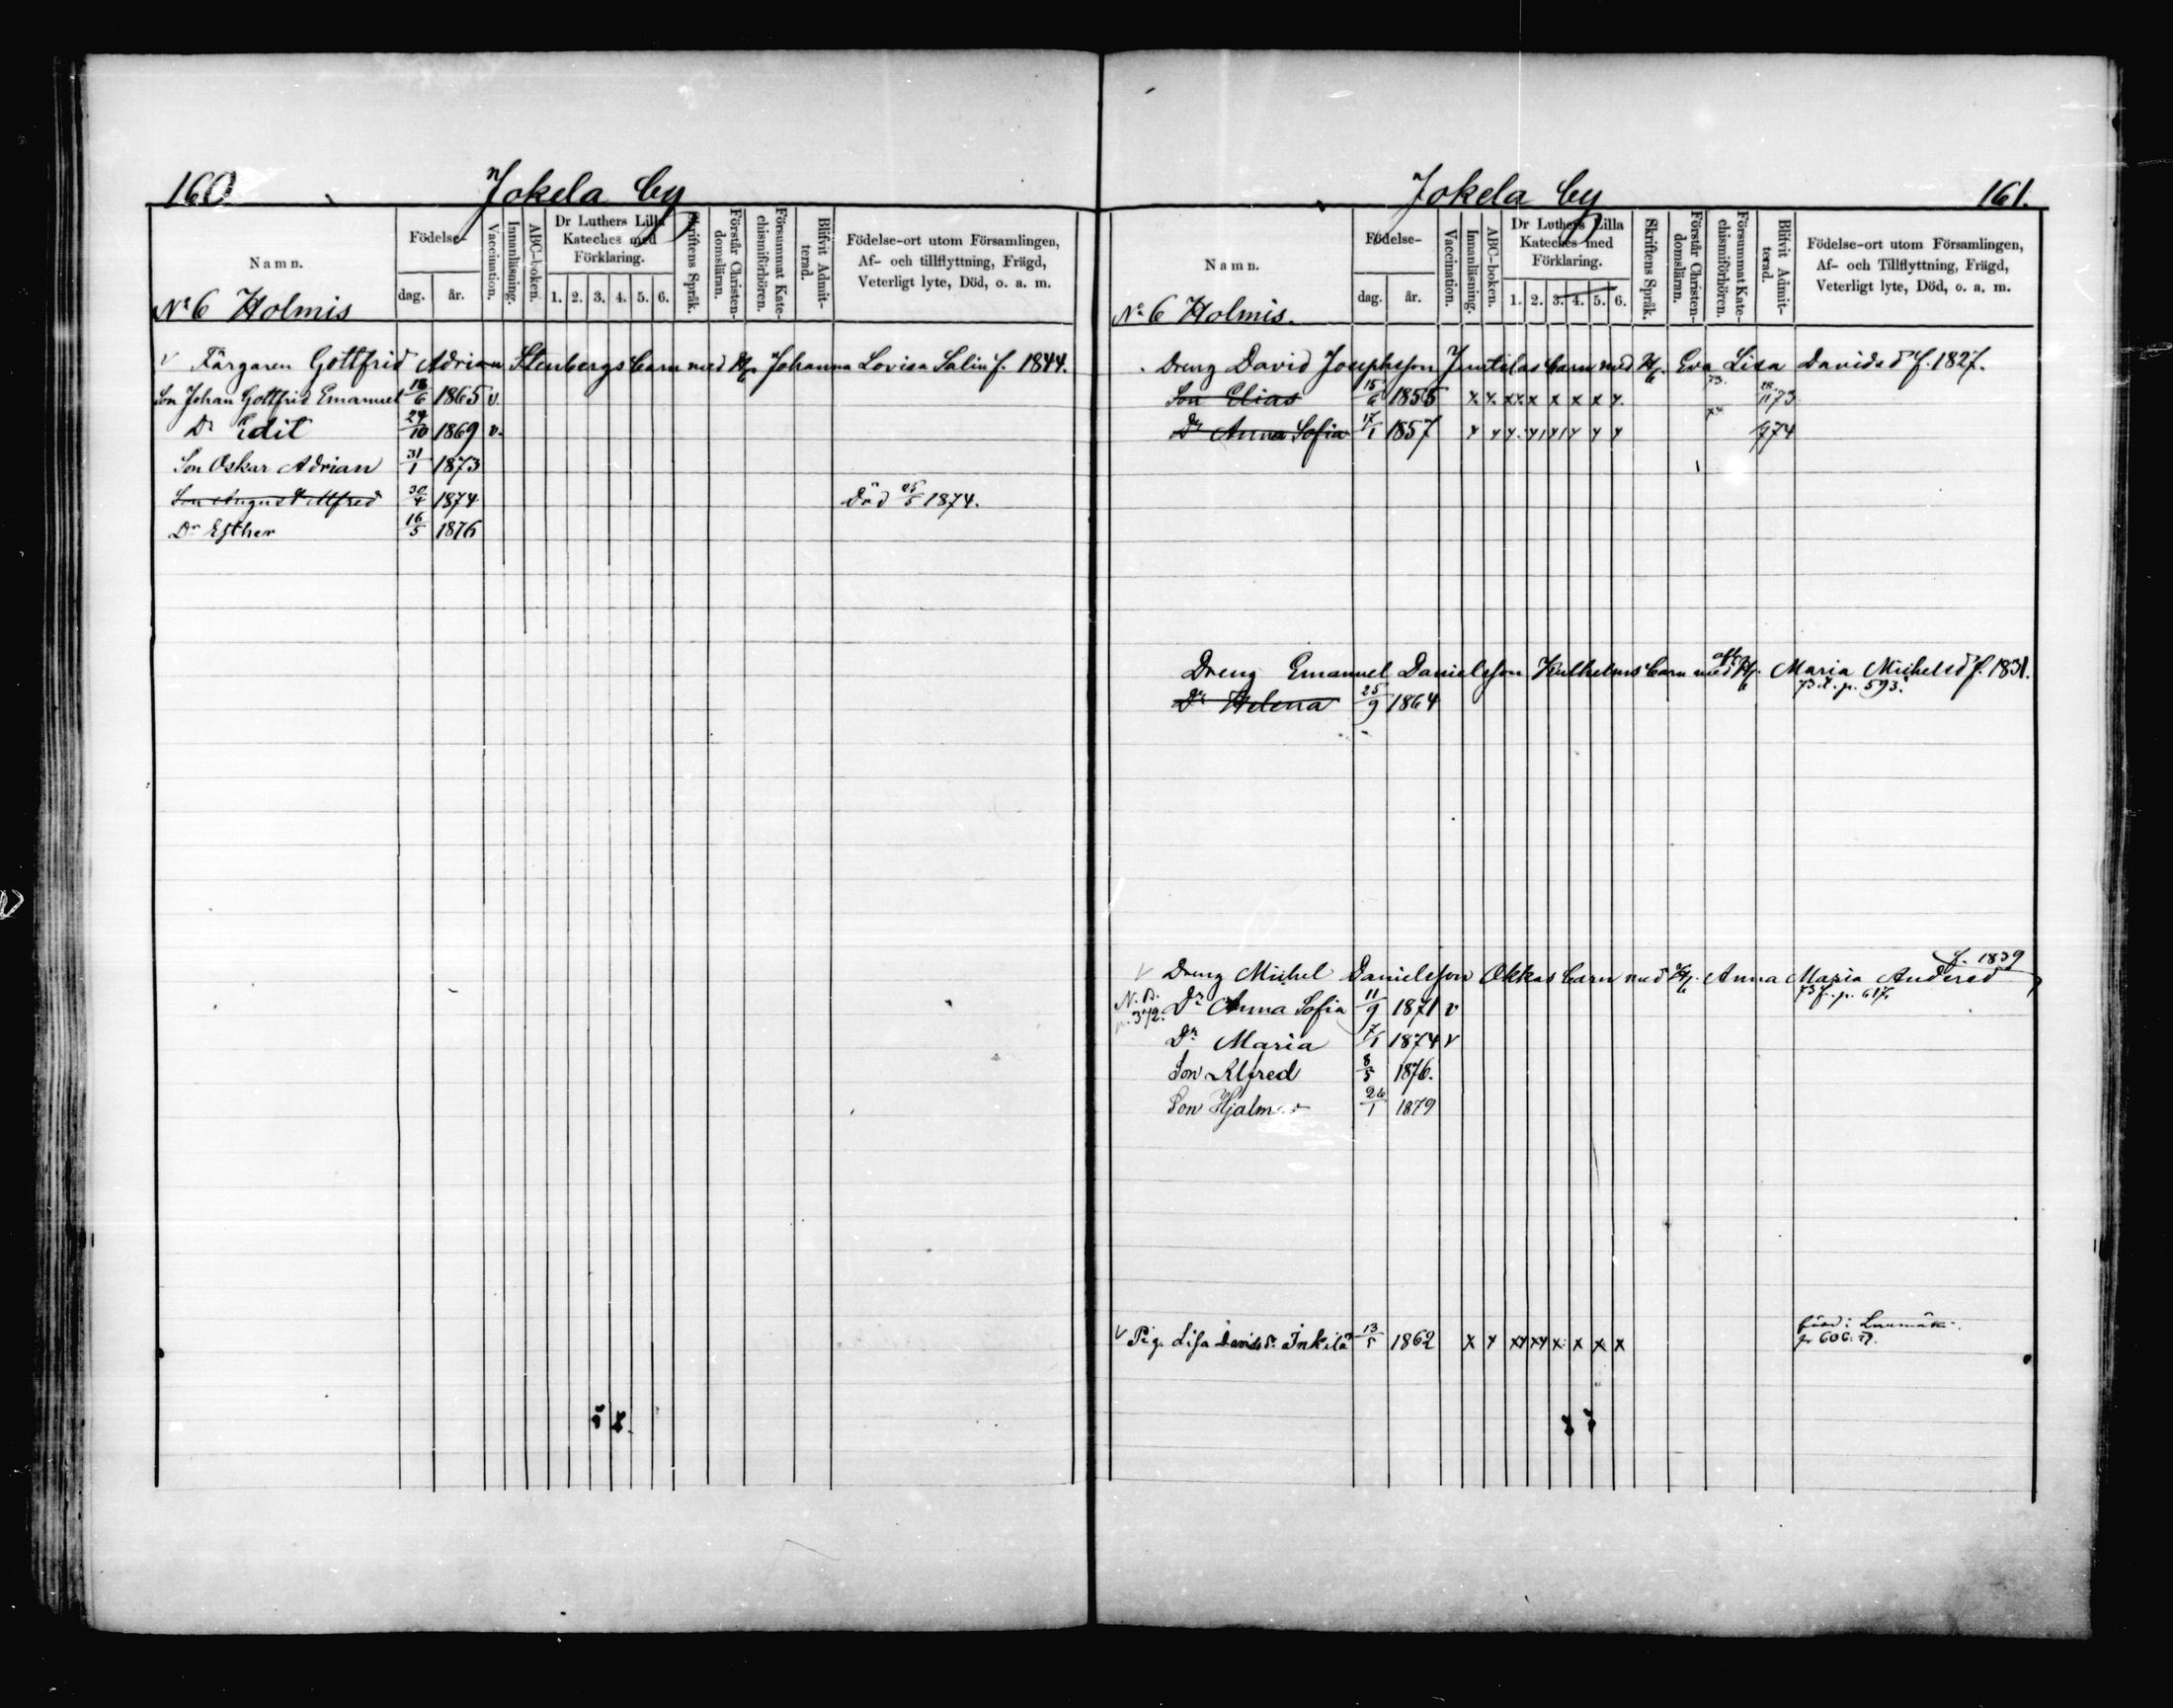 160 Jokela by
Namn. Födelse- dag. år. Vaccination. Innanläsning. ABC-boken. Dr Luthers Lilla Kateches med Förklaring. 1. 2. 3. 4. 5. 6. Skriftens Språk. Förstår Christendomsläran. Försummat Katechismiförhören. Blifvit Admitterad. Födelse-ort utom Församlingen, Af- och tillflyttning, Frägd, Veterligt lyte, Död, o. a. m.
No 6 Holmis
v Färgaren Gottfrid Adrian Stenbergs barn med H. Johanna Lovisa Salin f. 1844.
Son Johan Gottfrid Emanuel 18/6 1865 v.
Dr Edit 24/10 1869 v.
Son Oskar Adrian 31/1 1873
Son August Alfred 30/4 1874 Död 25/5 1874.
Dr Esther 16/5 1876
Jokela by 161.
Namn. Födelse- dag. år. Vaccination. Innanläsning. ABC-boken. Dr Luthers Lilla Kateches med Förklaring. 1. 2. 3. 4. 5. 6. Skriftens Språk. Förstår Christendomsläran. Försummat Katechismiförhören. Blifvit Admitterad. Födelse-ort utom Församlingen, Af- och Tillflyttning, Frägd, Veterligt lyte, Död, o. a. m.
No 6 Holmis.
Dreng David Josephsson Jentilas barn med H. Eva Lisa Davidsd f. 1827.
Son Elias 15/6 1855 x x xx x x x x x 73. 28/11 73
Dr Anna Sofia 17/1 1857 x x x x x x x x 74
Dreng Emanuel Danielsson Kulhelms barn med H. Maria Michelsd f. 1831.
Dr Helena 25/9 1864 p. 593.
f. 1839
v Dreng Michel Danielsson Okkas barn med H. Anna Maria Andersd
N. B. p. 372. Dr Anna Sofia 11/9 1871 v
Dr Maria 7/1 1874 v
Son Alfred 8/5 1876.
Son Hjalmar 26/1 1879
v Pig. Lisa Davidsd. Inkilä 13/5 1862 x x xx xx x x x x född i Luumäki.
p. 606.